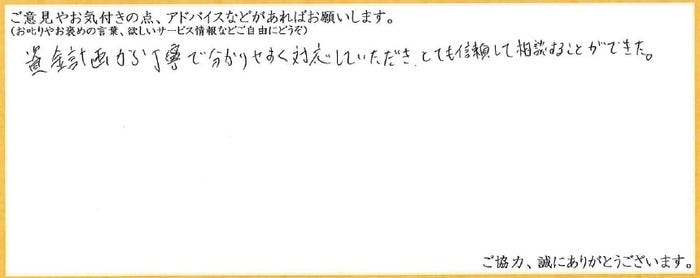 ご意見やお気付きの点、アドバイスなどがあればお願いします。
(お叱りやお褒めの言葉、欲しいサービス情報などご自由にどうぞ)
資金計画から丁寧で分かりやすく対応していただき、とても信頼して相談することができた。
ご協力、誠にありがとうございます。